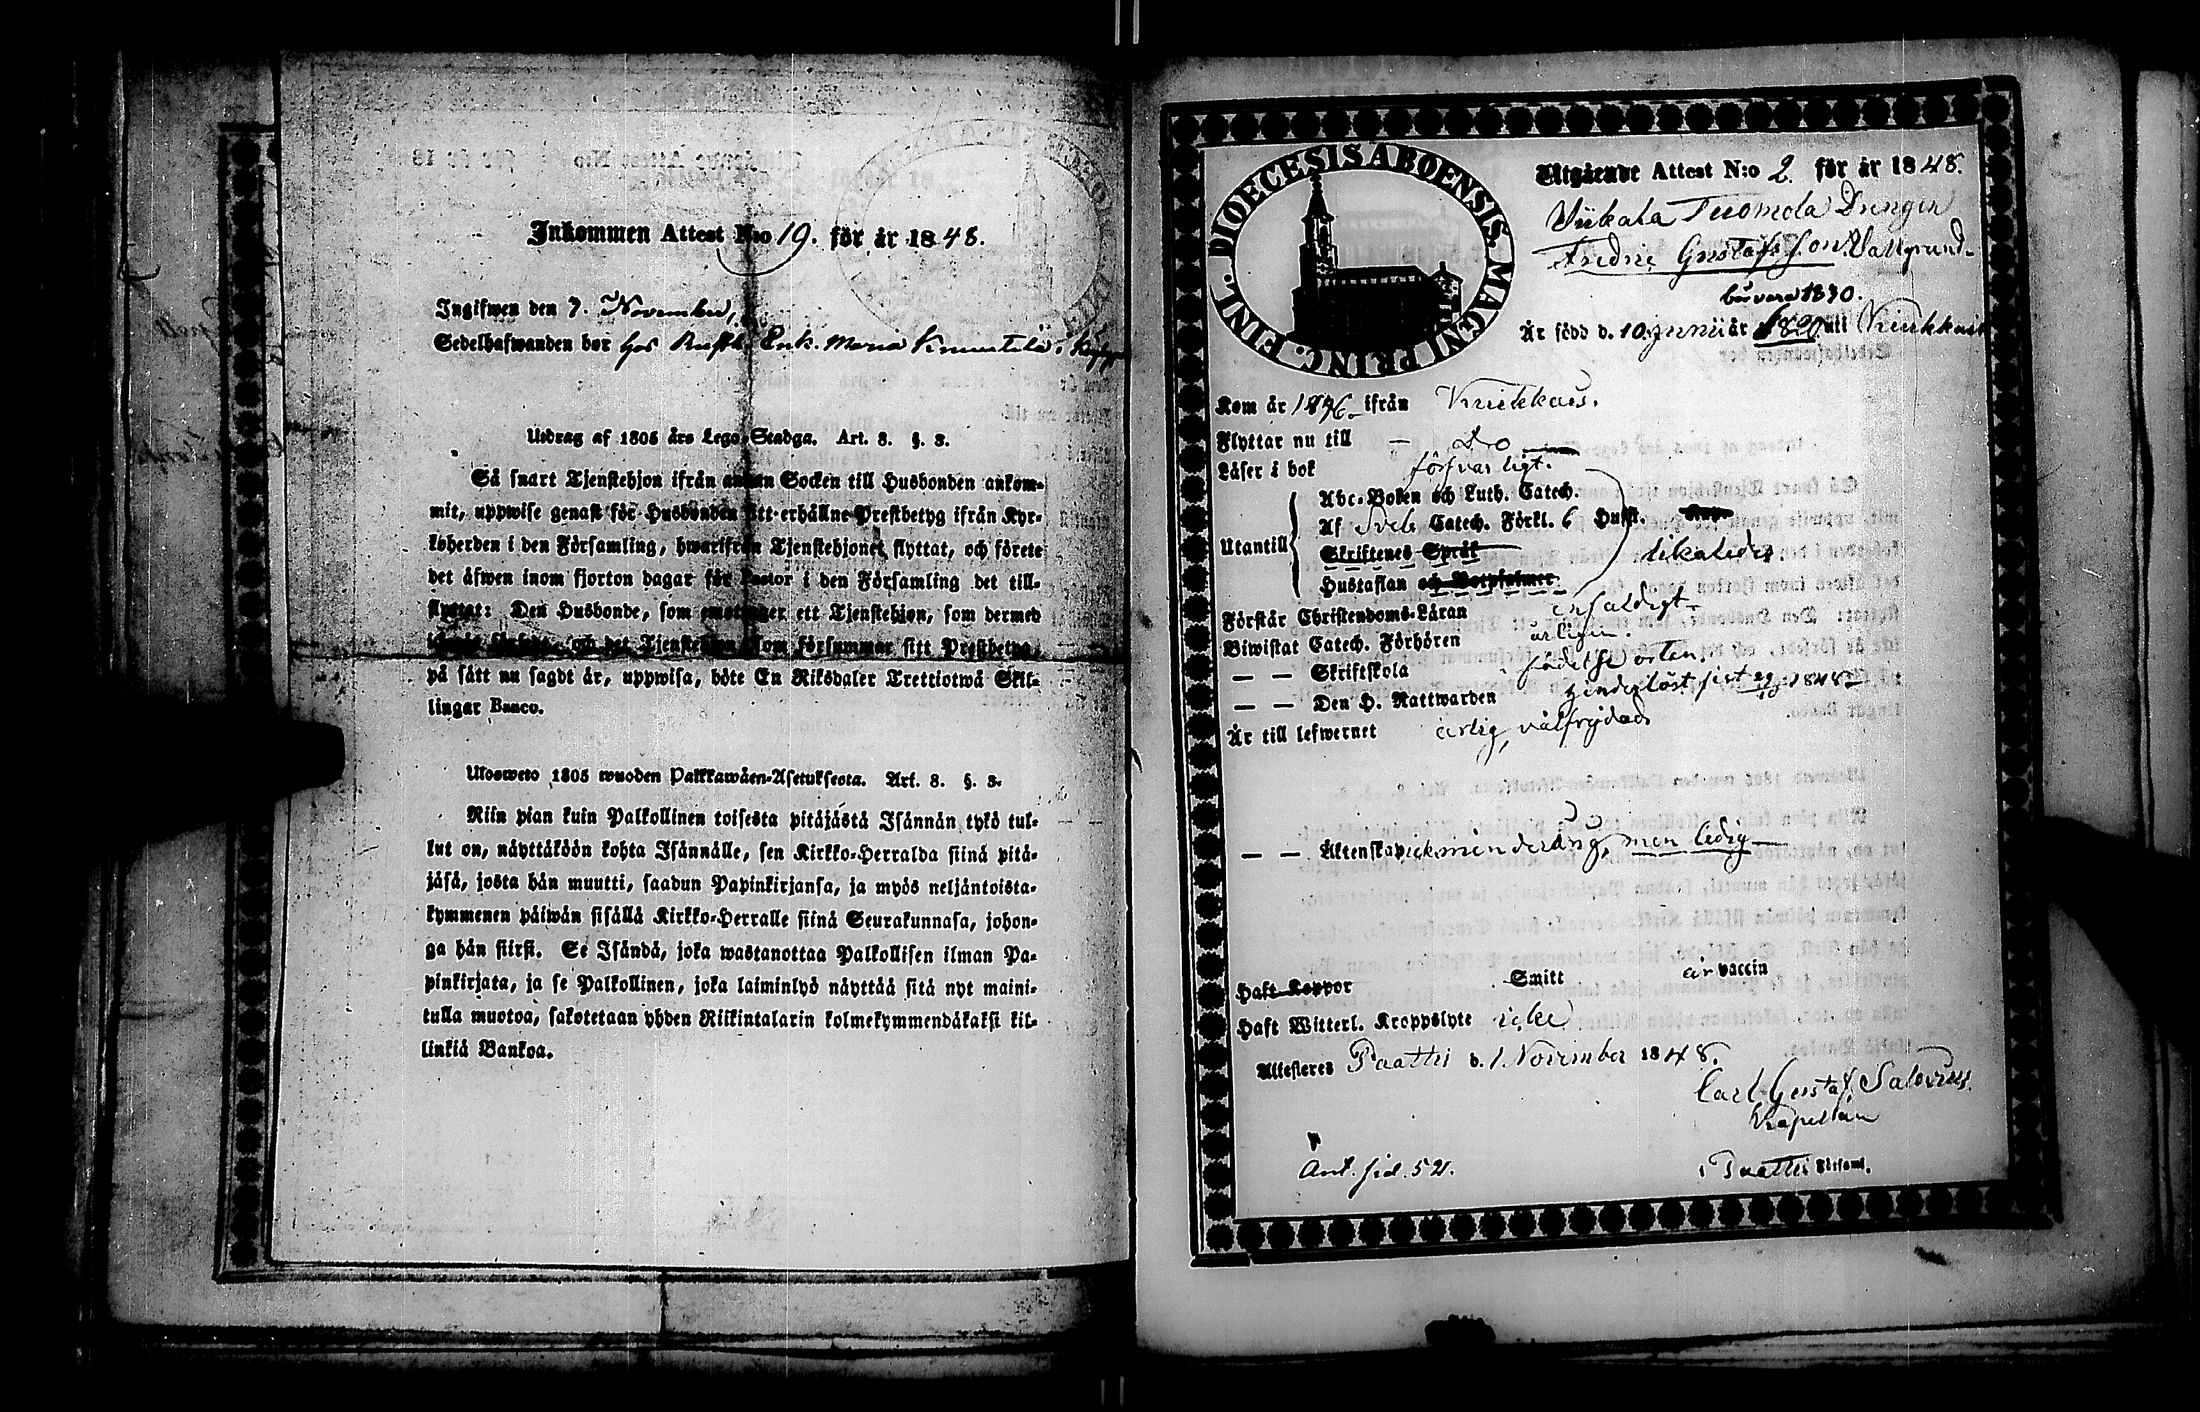 Inkommen Attest N:o 19. för år 1848.
Ingifwen den 7. November,
Sedelhafwanden bor hos Rusth. Enk. Maria Knuutila i
Utdrag af 1805 års Lego-Stadga. Art. 8. §. 3.
Så snart Tjenstehjon ifrån annan Socken till Husbonden ankom-
mit, uppwise genast för Husbonden ett erhållne Prestbetyg ifrån Kyr-
koherden i den Församling, hwarifrån Tjenstehjonet flyttat, och förete
det äfwen inom fjorton dagar för Pastor i den Församling det till-
flyttat: Den Husbonde, som emottager ett Tjenstehjon, som dermed
och det Tjenstehjon, som försummar sitt Prestbetyg,
på sätt nu sagdt är, uppwisa, böte En Riksdaler Trettiotwå Skil-
lingar Banco.
Ulosweto 1805 wuoden Palkkawäen-Asetuksesta. Art. 8. §. 3.
Niin pian kuin Palkollinen toisesta pitäjästä Isännän tykö tul-
lut on, näyttäköön kohta Isännälle, sen Kirkko-Herralda siinä pitä-
jäsä, josta hän muutti, saadun Papinkirjansa, ja myös neljäntoista-
kymmenen päiwän sisällä Kirkko-Herralle siinä Seurakunnasa, johon-
ga hän siirsi. Se Isändä, joka wastanottaa Palkollisen ilman Pa-
pinkirjata, ja se Palkollinen, joka laiminlyö näyttää sitä nyt maini-
tulla muotoa, sakotetaan yhden Riikintalarin kolmekymmendäkaksi kil-
linkiä Bankoa.
DIOECESIS ABOENSIS. MAGNI PRINC. FINL.
Utgående Attest N:o 2. för år 1848.
Wiikala Tuomola Drengen
Fredric Gustafsson Vallgrund
bör vara 1830.
Är född d. 10 Junii år 1820 uti Kiukkais
Kom år 1846 ifrån Kiukkais.
Flyttar nu till — D:o
Läser i bok försvarligt.
Utantill
Abc-Boken och Luth. Catech.
Af Sveb Catech. Förkl. 6 Hufst.
Skriftenes Språk
likaledes.
Hustaflan och Botpsalmer
Förstår Christendoms-Läran enfaldigt
Biwistat Catech. Förhören årligen.
— — Skriftskola i födelseorten.
— — Den H. Nattwarden sist 1848
Är till lefwernet ärlig, välfrejdad
— — Äktenskap ickminderårig, men ledig —
Haft Koppor Smitt är vaccin
Haft Witterl. Kroppslyte icke
Attesteres Paattis d. 1 November 1848.
Carl Gustaf Salovius.
Kapellan
i Paattis Församl.
Ant. sid. 52.